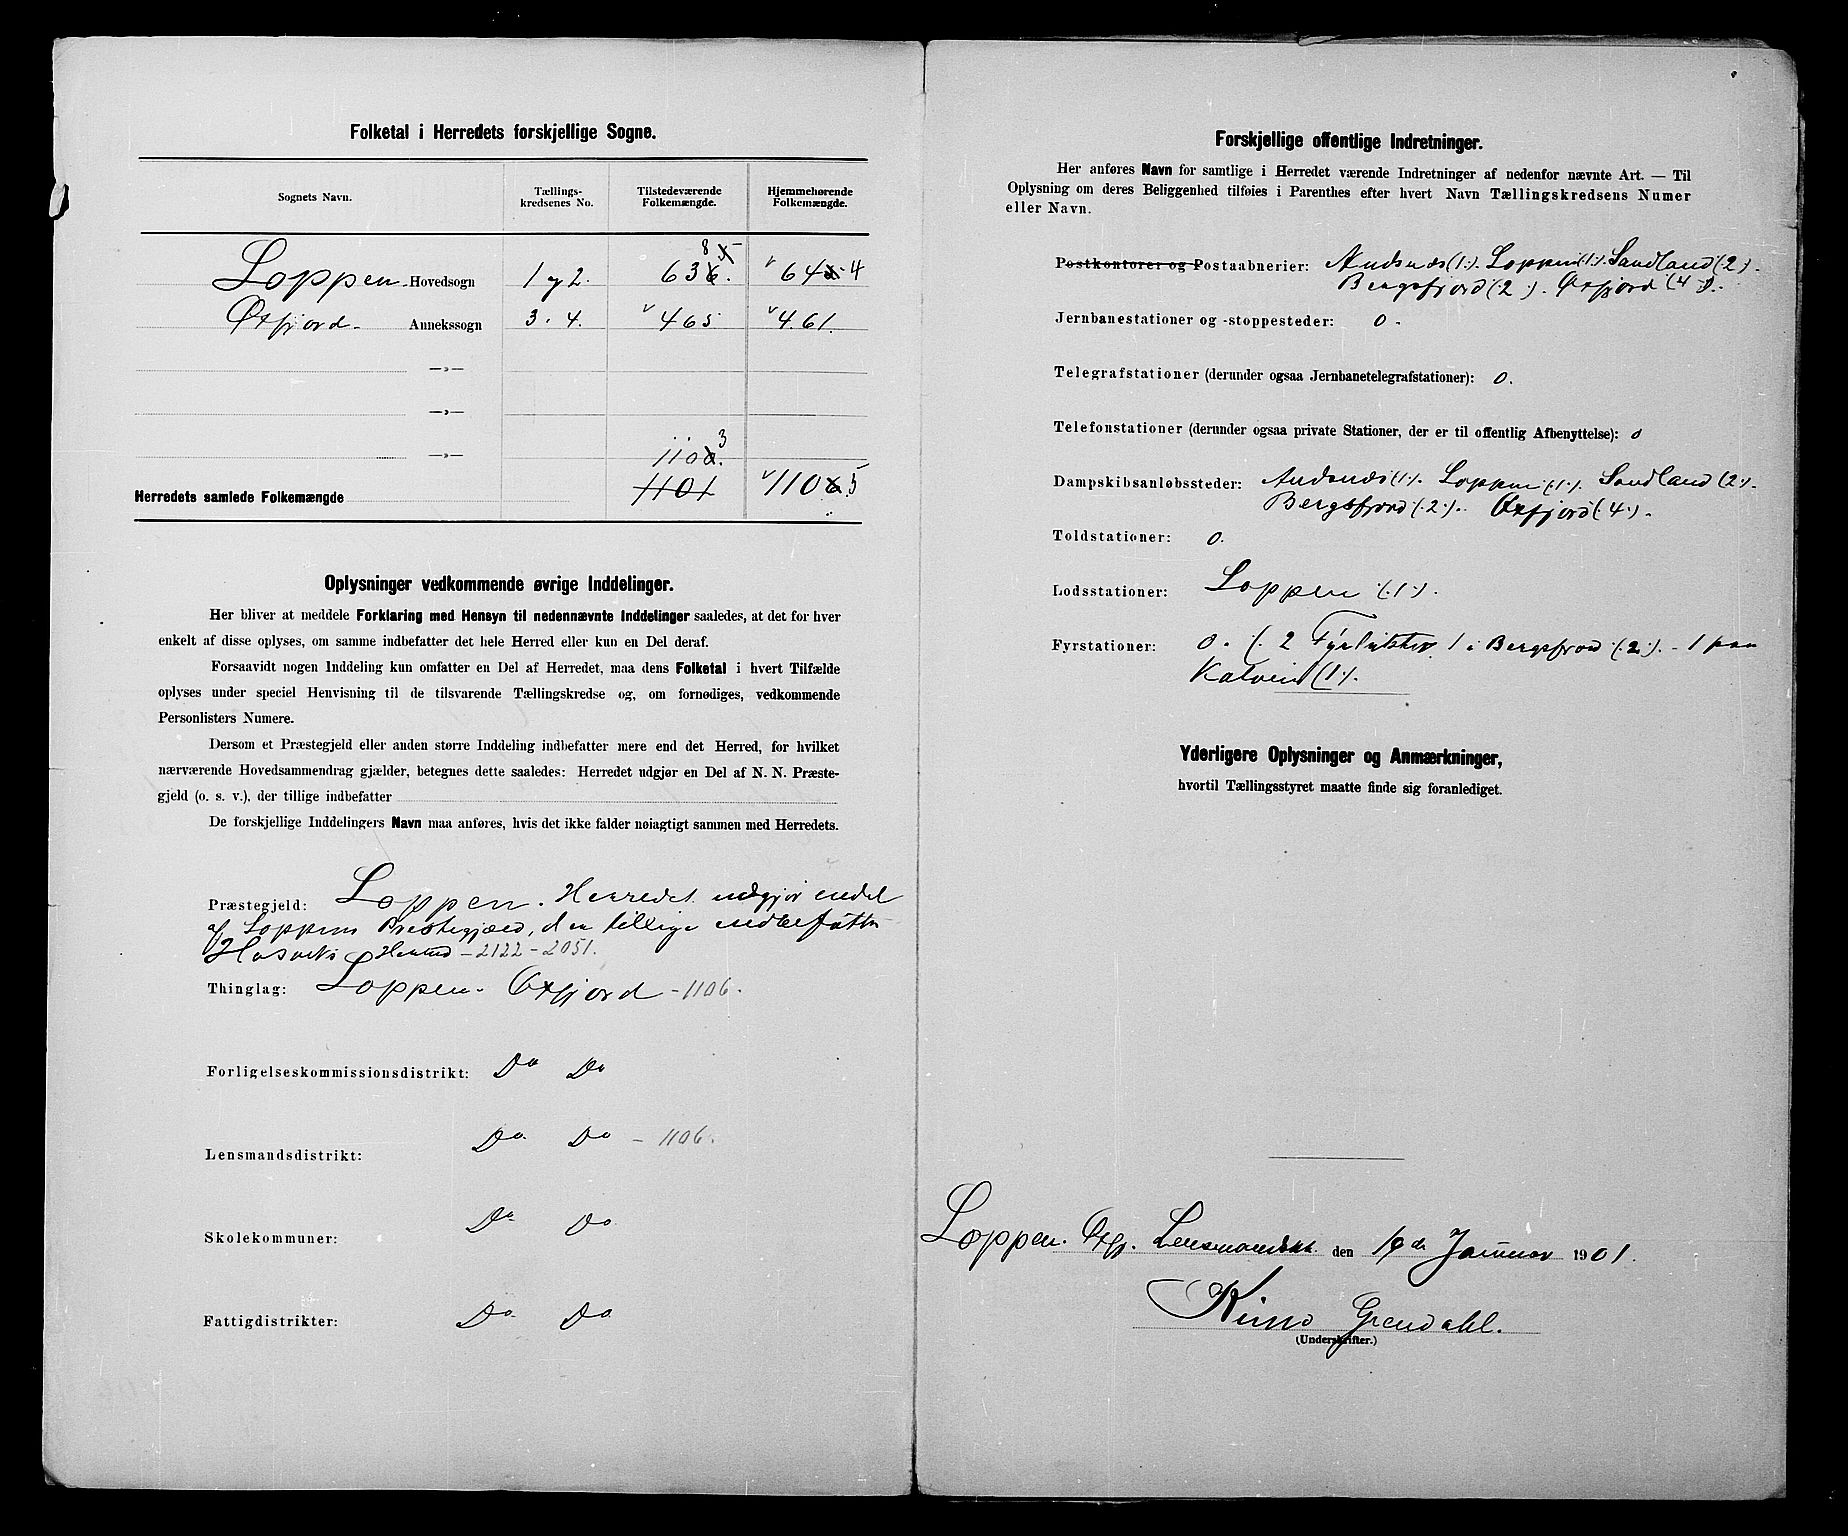 Folketal i Herredets forskjellige Sogne.
Sognets Navn. Tællings-kredsenes No. Tilstedeværende Folkemængde. Hjemmehørende Folkemængde.
Loppen Hovedsogn 1 og 2. 638 644
Øxfjord Annekssogn 3. 4. 465 461.
—„—
—„—
—„— 1103
Herredets samlede Folkemængde 1101 1105
Oplysninger vedkommende øvrige Inddelinger.
Her bliver at meddele Forklaring med Hensyn til nedennævnte Inddelinger saaledes, at det for hver
enkelt af disse oplyses, om samme indbefatter det hele Herred eller kun en Del deraf.
Forsaavidt nogen Inddeling kun omfatter en Del af Herredet, maa dens Folketal i hvert Tilfælde
oplyses under speciel Henvisning til de tilsvarende Tællingskredse og, om fornødiges, vedkommende
Personlisters Numere.
Dersom et Præstegjeld eller anden større Inddeling indbefatter mere end det Herred, for hvilket
nærværende Hovedsammendrag gjælder, betegnes dette saaledes: Herredet udgjør en Del af N. N. Præste-
gjeld (o. s. v.), der tillige indbefatter
De forskjellige Inddelingers Navn maa anføres, hvis det ikke falder nøiagtigt sammen med Herredets.
Præstegjeld: Loppen. Herredet udgjør endel
af Loppens Prestegjæld, den tillige indbefatter
Hasviks Herred - 2122 - 2051.
Thinglag: Loppen - Øxfjord - 1106.
Forligelseskommissionsdistrikt: Do Do
Lensmandsdistrikt: Do Do - 1106.
Skolekommuner: Do Do
Fattigdistrikter: Do Do
Forskjellige offentlige Indretninger.
Her anføres Navn for samtlige i Herredet værende Indretninger af nedenfor nævnte Art. — Til
Oplysning om deres Beliggenhed tilføies i Parenthes efter hvert Navn Tællingskredsens Numer
eller Navn.
Postkontorer og Postaabnerier: Andsnæs (1). Loppen (1). Sandland (2).
Bergsfjord (2). Øxfjord (4).
Jernbanestationer og -stoppesteder: 0.
Telegrafstationer (derunder ogsaa Jernbanetelegrafstationer): 0.
Telefonstationer (derunder ogsaa private Stationer, der er til offentlig Afbenyttelse): 0
Dampskibsanløbssteder: Andsnæs (1). Loppen (1). Sandland (2).
Bergsfjord (2). Øxfjord (4).
Toldstationer: 0.
Lodsstationer: Loppen (1).
Fyrstationer: 0. (2 Fyrlygter 1 i Bergsfjord (2). - 1 paa
Kalven (1).
Yderligere Oplysninger og Anmærkninger,
hvortil Tællingsstyret maatte finde sig foranlediget.
Loppen. Øxfj. Lensmandskt. den 19de Januar 1901.
Grendahl.
(Underskrifter.)